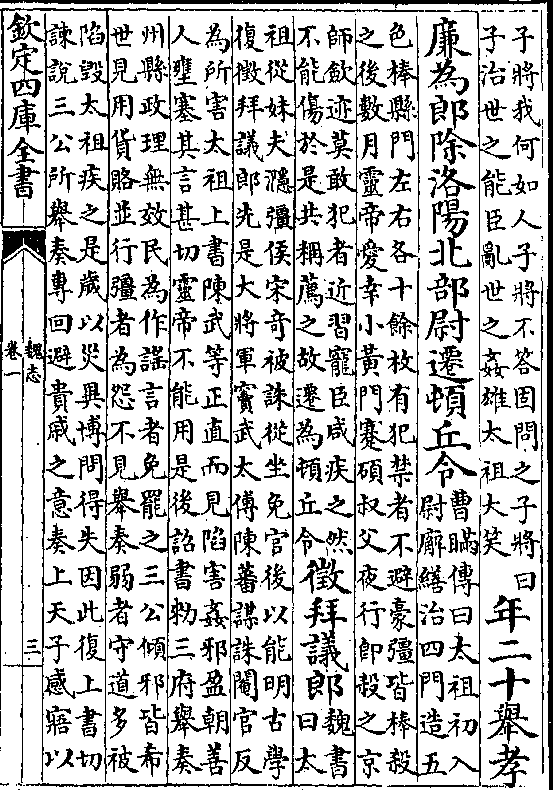 子將我何如人子將不答固問之子將曰
子治世之能臣亂世之姦雄太祖大笑
年二十舉孝
廉為郎除洛陽北部尉遷頓丘令
曹瞞傳曰太祖初入
尉廨繕治四門造五
色棒縣門左右各十餘枚有犯禁者不避豪彊皆棒殺
之後數月靈帝愛幸小黃門蹇碩叔父夜行即殺之京
師歛迹莫敢犯者近習寵臣咸疾之然
不能傷於是共稱薦之故遷為頓丘令
徵拜議郎
魏書
曰太
祖從妹夫㶏彊侯宋奇被誅從坐免官後以能明古學
復徵拜議郎先是大將軍竇武太傅陳蕃謀誅閹官反
為所害太祖上書陳武等正直而見陷害姦邪盈朝善
人壅塞其言甚切靈帝不能用是後詔書勑三府舉奏
州縣政理無效民為作謠言者免罷之三公傾邪皆希
世見用貨賂並行彊者為怨不見舉奏弱者守道多被
陷毀太祖疾之是歲以災異博問得失因此復上書切
諫說三公所舉奏專回避貴戚之意奏上天子感寤以
欽定四庫全書
魏志
卷一
三